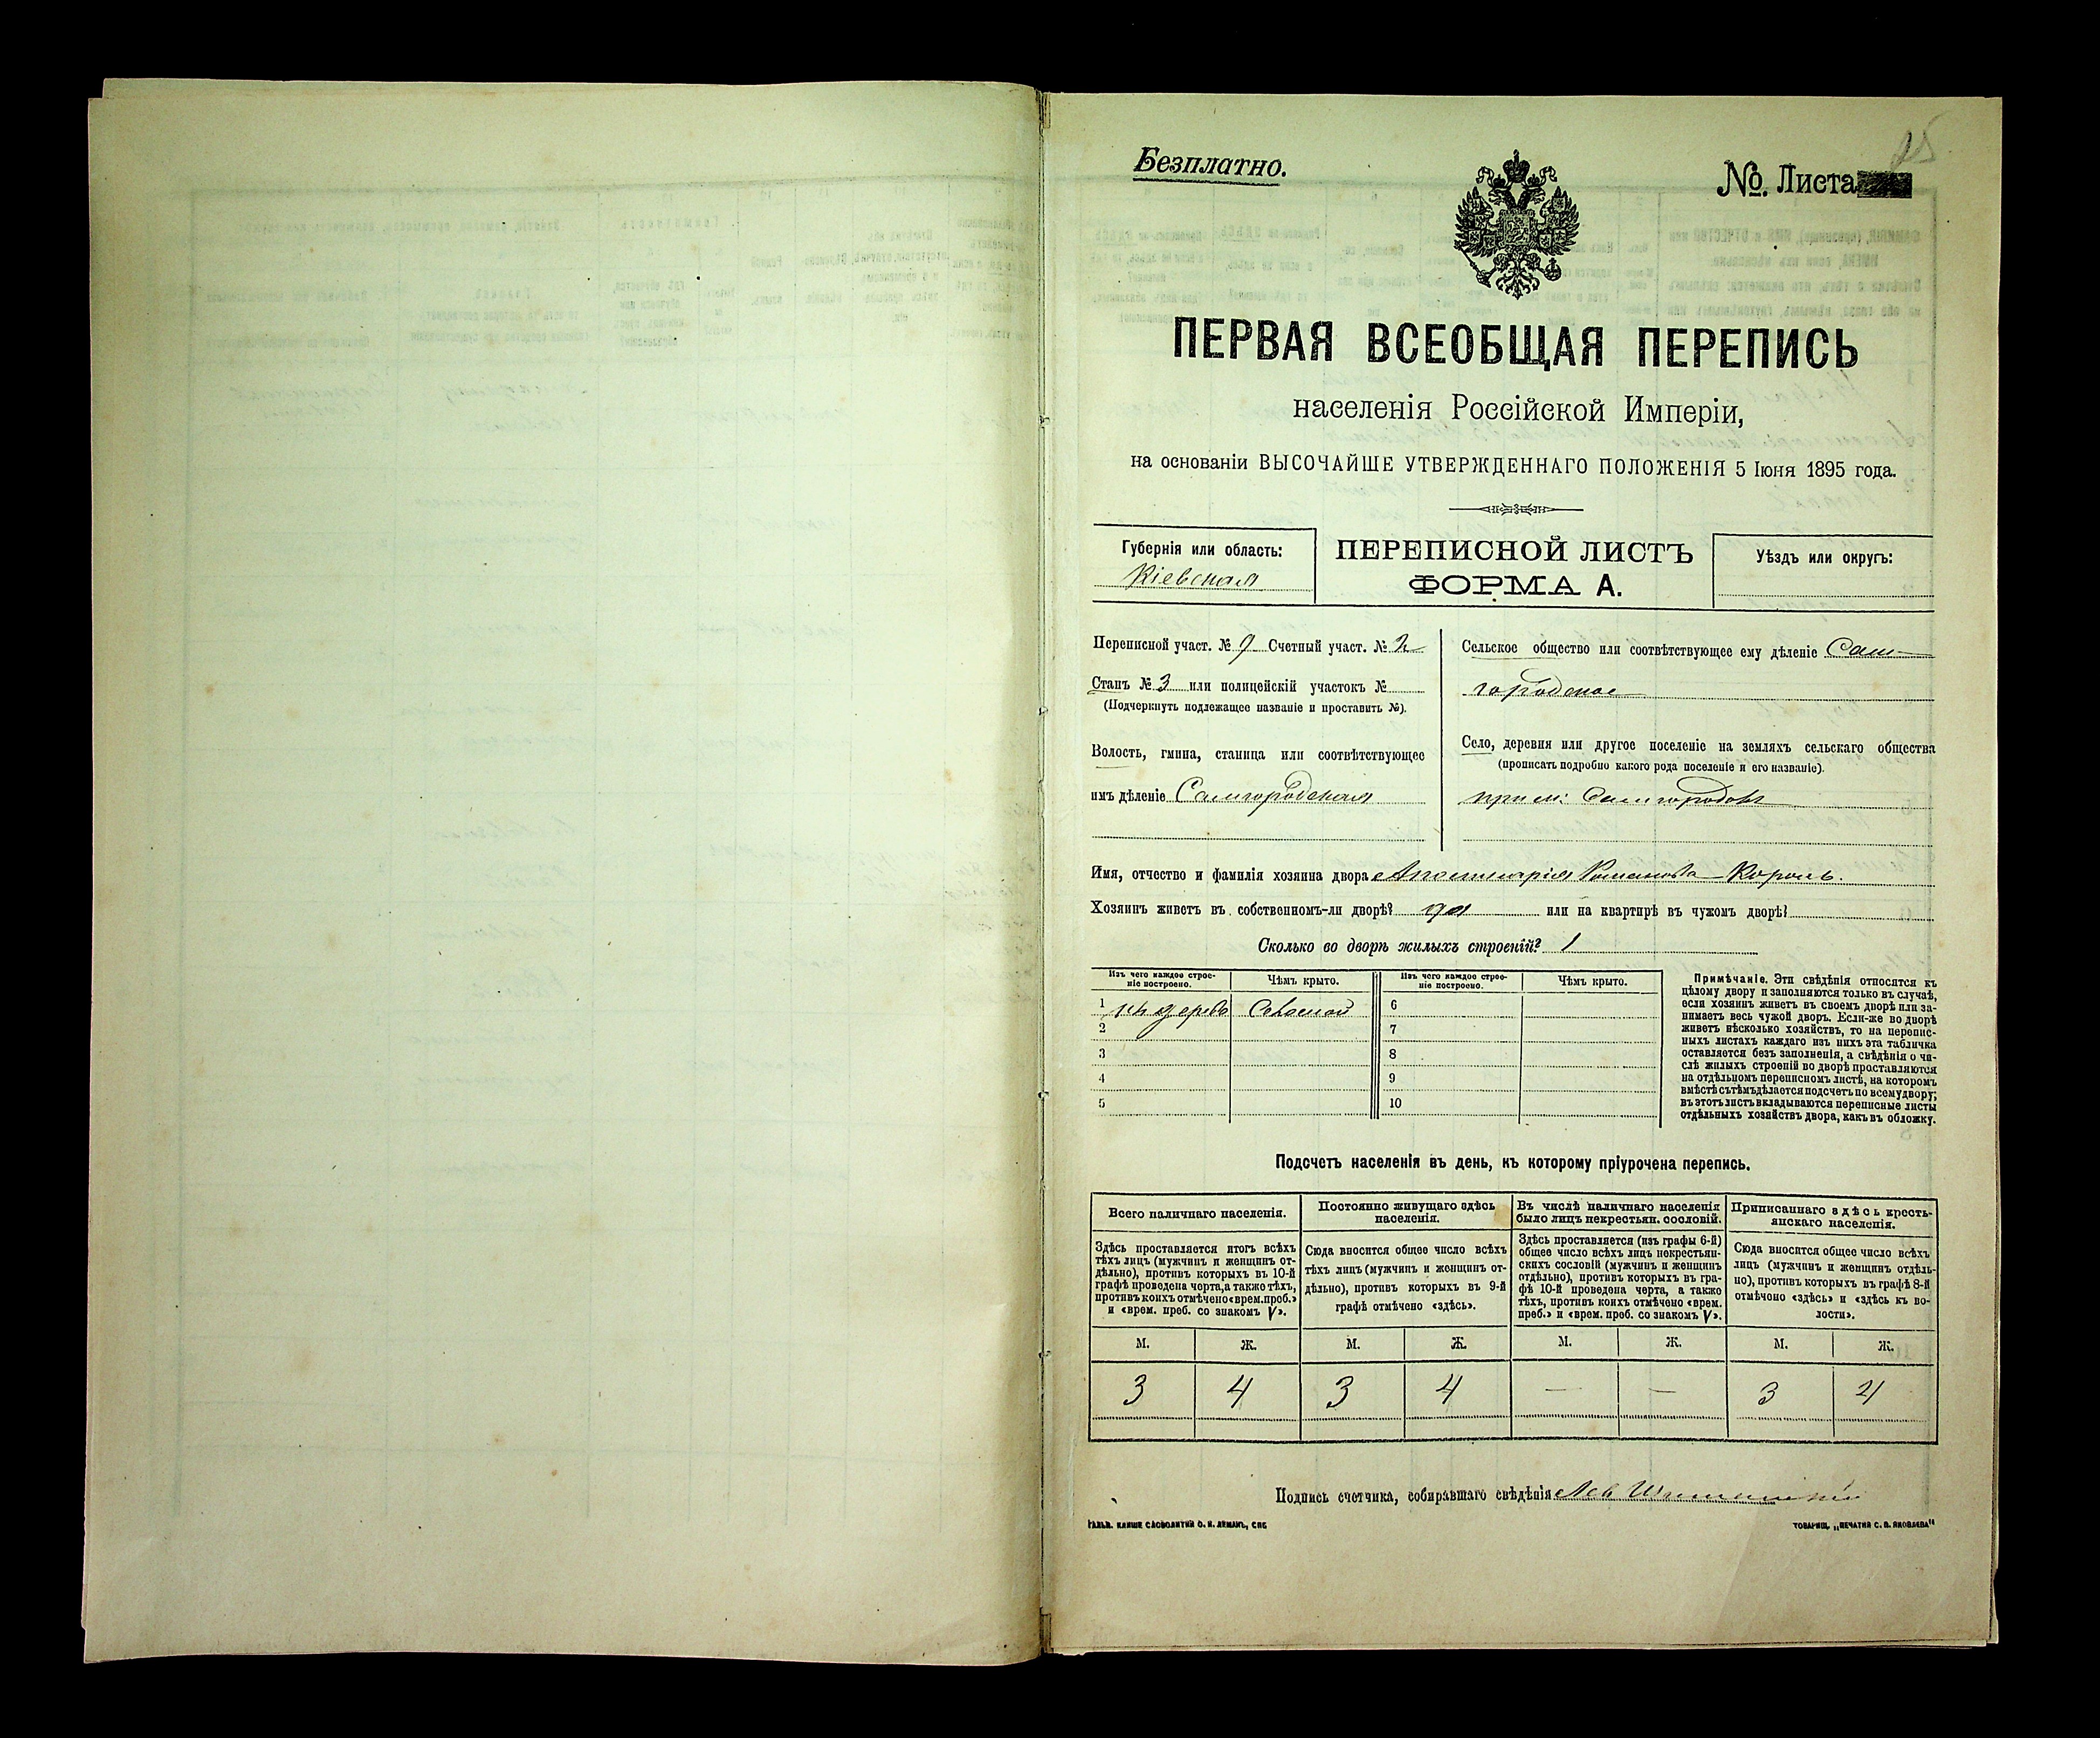 Безплатно.
№. Листа
ПЕРВАЯ ВСЕОБЩАЯ ПЕРЕПИСЬ
населенія Россійской Имперіи,
на основаніи ВЫСОЧАЙШЕ УТВЕРЖДЕННАГО ПОЛОЖЕНІЯ 5 Іюня 1895 года.
Губернія или область:
Кіевская
ПЕРЕПИСНОЙ ЛИСТЪ
ФОРМА А.
Уѣздъ или округъ:
Переписной участ. № 9 Счетный участ. № 2
Станъ № 3 или полицейскій участокъ №
(Подчеркнуть подлежащее названіе и проставить №).
Волость, гмина, станица или соотвѣтствующее
имъ дѣленіе Самгородская
Сельское общество или соотвѣтствующее ему дѣленіе Сам-
городское
Село, деревня или другое поселеніе на земляхъ сельскаго общества
(прописать подробно какого рода поселеніе и его названіе).
Самгородокъ
Имя, отчество и фамилія хозяина двора Романова Король.
Хозяинъ живетъ въ собственномъ-ли дворѣ? да или на квартирѣ въ чужомъ дворѣ?
Сколько во дворѣ жилыхъ строеній? 1
Изъ чего каждое строе-
ніе построено.
Чѣмъ крыто.
Изъ чего каждое строе-
ніе построено.
Чѣмъ крыто.
1 изъ дерева Соломой 6
2 7
3 8
4 9
5 10
Примѣчаніе. Эти свѣдѣнія относятся къ
цѣлому двору и заполняются только въ случаѣ,
если хозяинъ живетъ въ своемъ дворѣ или за-
нимаетъ весь чужой дворъ. Если-же во дворѣ
живетъ нѣсколько хозяйствъ, то на перепис-
ныхъ листахъ каждаго изъ нихъ эта табличка
оставляется безъ заполненія, а свѣдѣнія о чи-
слѣ жилыхъ строеній во дворѣ проставляются
на отдѣльномъ переписномъ листѣ, на которомъ
вмѣстѣ съ тѣмъ дѣлается подсчетъ по всему двору;
въ этотъ листъ вкладываются переписные листы
отдѣльныхъ хозяйствъ двора, какъ въ обложку.
Подсчетъ населенія въ день, къ которому пріурочена перепись.
Всего наличнаго населенія.
Здѣсь проставляется итогъ всѣхъ
тѣхъ лицъ (мужчинъ и женщинъ от-
дѣльно), противъ которыхъ въ 10-й
графѣ проведена черта, а также тѣхъ,
противъ коихъ отмѣчено «врем. преб.»
и «врем. преб. со знакомъ V».
Постоянно живущаго здѣсь
населенія.
Сюда вносится общее число всѣхъ
тѣхъ лицъ (мужчинъ и женщинъ от-
дѣльно), противъ которыхъ въ 9-й
графѣ отмѣчено «здѣсь».
Въ числѣ наличнаго населенія
было лицъ некрестьян. сословій.
Здѣсь проставляется (изъ графы 6-й)
общее число всѣхъ лицъ некрестьян-
скихъ сословій (мужчинъ и женщинъ
отдѣльно), противъ которыхъ въ гра-
фѣ 10-й проведена черта, а также
тѣхъ, противъ коихъ отмѣчено «врем.
преб.» и «врем. преб. со знакомъ V».
Приписаннаго здѣсь кресть-
янскаго населенія.
Сюда вносится общее число всѣхъ
лицъ (мужчинъ и женщинъ отдѣль-
но), противъ которыхъ въ графѣ 8-й
отмѣчено «здѣсь» и «здѣсь къ во-
лости».
М. Ж. М. Ж. М. Ж. М. Ж.
3 4 3 4 — — 3 4
Подпись счетчика, собиравшаго свѣдѣнія Лев
ТОВАРИЩ. „ПЕЧАТНЯ С. П. ЯКОВЛЕВА“